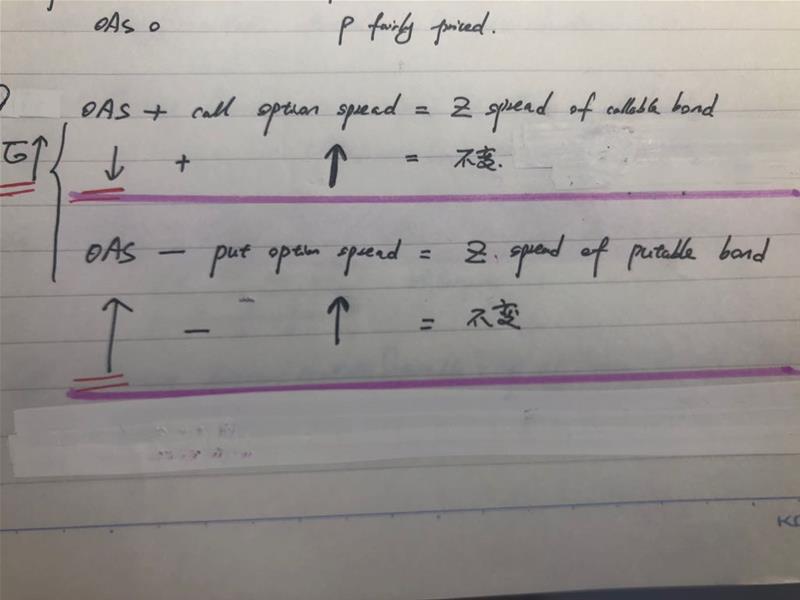 OAS 0 P fairly priced.
OAS + call option spread = Z spread of callable bond
σ↑ { ↓ + ↑ = 不变.
OAS — put option spread = Z. spread of putable bond
↑ — ↑ = 不变